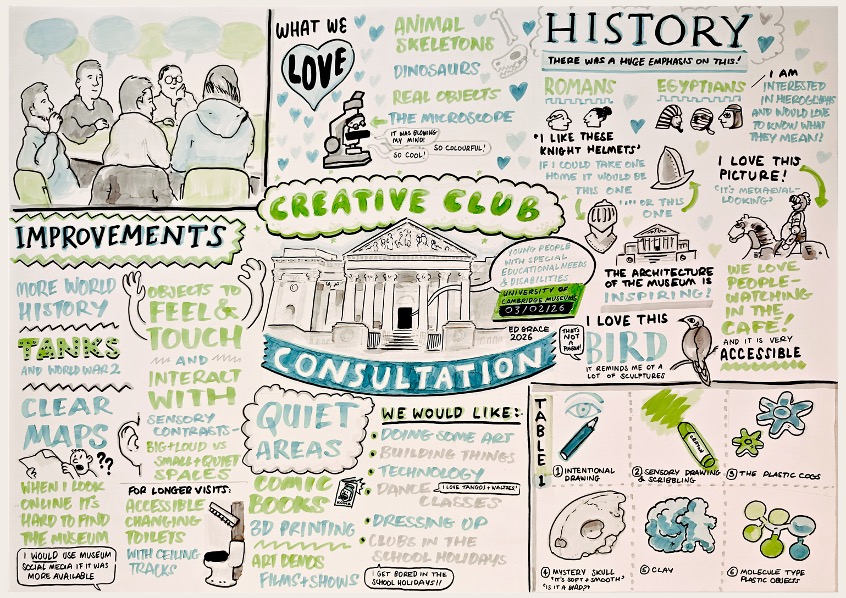 WHAT WE
LOVE
ANIMAL
SKELETONS
DINOSAURS
REAL OBJECTS
THE MICROSCOPE
IT WAS BLOWING
MY MIND!
SO COOL!
SO COLOURFUL!
HISTORY
THERE WAS A HUGE EMPHASIS ON THIS!
ROMANS
EGYPTIANS
I AM
INTERESTED
IN HIEROGLYPHS
AND WOULD LOVE
TO KNOW WHAT
THEY MEAN!
"I LIKE THESE
KNIGHT HELMETS"
IF I COULD TAKE ONE
HOME IT WOULD BE
THIS ONE
... OR THIS
ONE
I LOVE THIS
PICTURE!
"IT'S MEDIAEVAL-
LOOKING"
THE ARCHITECTURE
OF THE MUSEUM IS
INSPIRING!
WE LOVE
PEOPLE-
WATCHING
IN THE
CAFE!
AND IT IS VERY
ACCESSIBLE
I LOVE THIS
BIRD
IT REMINDS ME OF A
LOT OF SCULPTURES
THAT'S
NOT A
CREATIVE CLUB
YOUNG PEOPLE
WITH SPECIAL
EDUCATIONAL NEEDS
& DISABILITIES
UNIVERSITY OF
CAMBRIDGE MUSEUMS
03/02/26
ED GRACE
2026
CONSULTATION
IMPROVEMENTS
MORE WORLD
HISTORY
TANKS
AND WORLD WAR 2
CLEAR
MAPS
??
WHEN I LOOK
ONLINE IT'S
HARD TO FIND
THE MUSEUM
I WOULD USE MUSEUM
SOCIAL MEDIA IF IT WAS
MORE AVAILABLE
OBJECTS TO
FEEL &
TOUCH
AND
INTERACT
WITH
SENSORY
CONTRASTS-
BIG+LOUD VS
SMALL+QUIET
SPACES
FOR LONGER VISITS:
ACCESSIBLE
CHANGING
TOILETS
WITH CEILING
TRACKS
QUIET
AREAS
COMIC
BOOKS
3D PRINTING
ART DEMOS
FILMS+SHOWS
WE WOULD LIKE:
• DOING SOME ART
• BUILDING THINGS
• TECHNOLOGY
• DANCE
CLASSES
I LOVE TANGOS + WALTZES!
• DRESSING UP
• CLUBS IN THE
SCHOOL HOLIDAYS
I GET BORED IN THE
SCHOOL HOLIDAYS!!
TABLE 1
① INTENTIONAL
DRAWING
② SENSORY DRAWING
& SCRIBBLING
CRAYON
③ THE PLASTIC COGS
④ MYSTERY SKULL
"IT'S SOFT + SMOOTH"
"IS IT A BIRD?"
⑤ CLAY
⑥ MOLECULE TYPE
PLASTIC OBJECTS